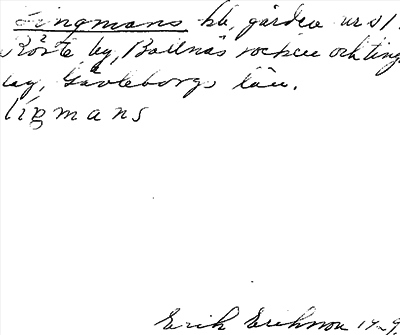 Lingmans hb, gården nr 51.
Röste by, Bollnäs socken och ting
lag, Gävleborgs län.
lig̥mans
Erik Erikson 1929.